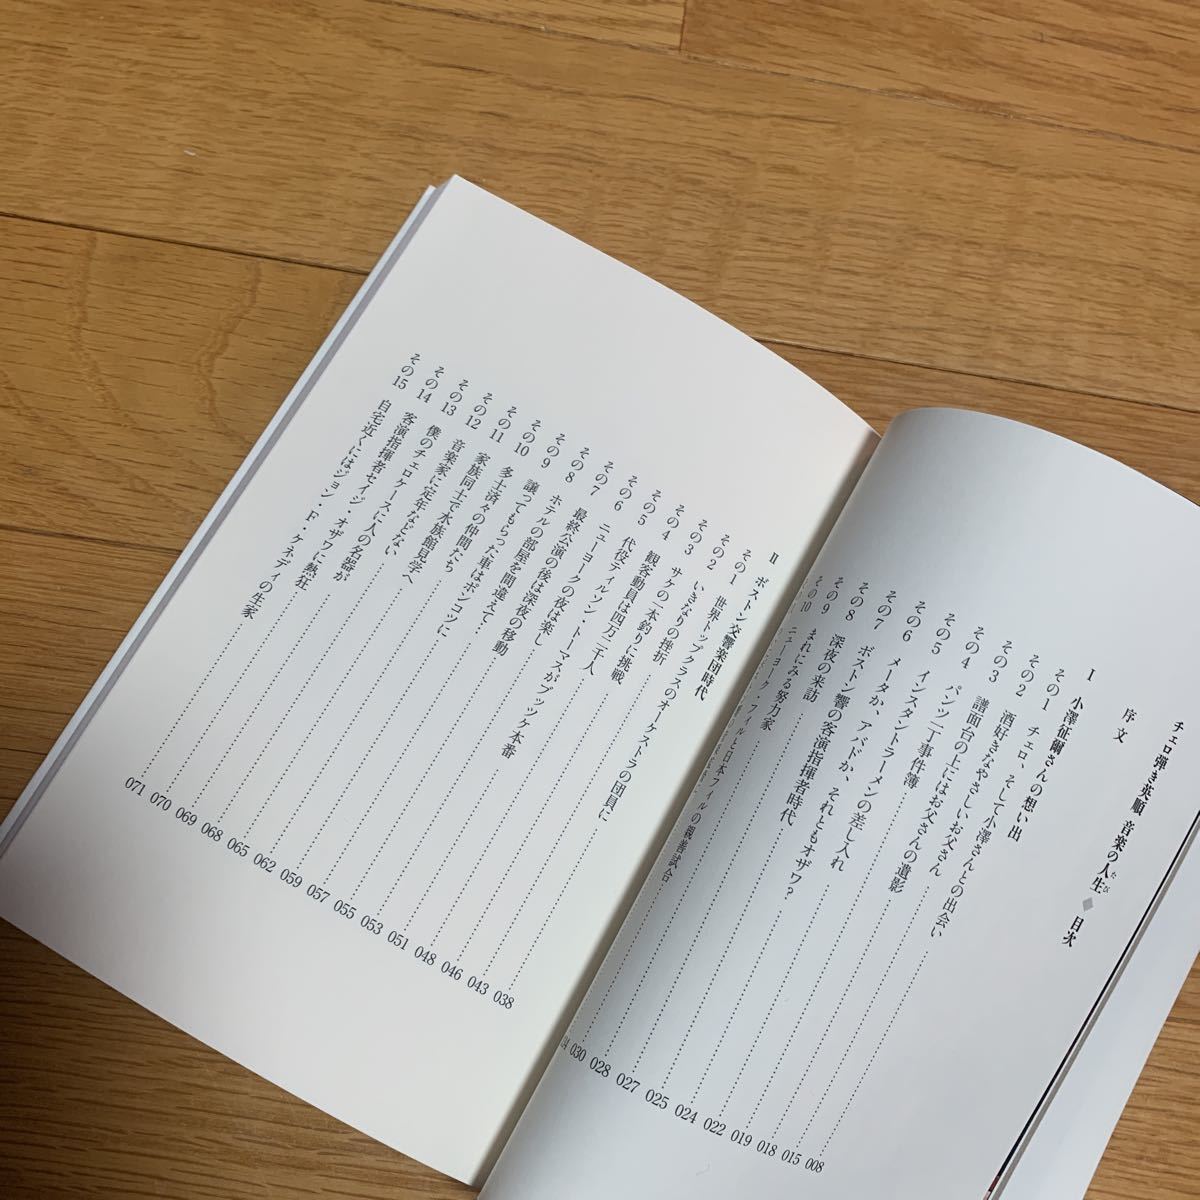 チェロ弾き英順 音楽の人生たび◆目次
序文 008
Ⅰ 小澤征爾さんの想い出
その1 チェロ、そして小澤さんとの出会い 015
その2 酒好きなやさしいお父さん 018
その3 譜面台の上にはお父さんの遺影 019
その4 パンツ一丁事件簿 022
その5 インスタントラーメンの差し入れ 024
その6 メータか、アバドか、それともオザワ? 025
その7 ボストン響の客演指揮者時代 027
その8 深夜の来訪 028
その9 まれにみる努力家 030
その10 ニューヨーク・フィルと日本フィルの親善試合
Ⅱ ボストン交響楽団時代
その1 世界トップクラスのオーケストラの団員に 038
その2 いきなりの挫折 043
その3 サケの一本釣りに挑戦 046
その4 観客動員は四万二千人 048
その5 代役ティルソン・トーマスがブッツケ本番 051
その6 ニューヨークの夜は楽し 053
その7 最終公演の後は深夜の移動 055
その8 ホテルの部屋を間違えて 057
その9 譲ってもらった車はポンコツに 059
その10 多士済々の仲間たち 062
その11 家族同士で水族館見学へ 065
その12 音楽家に定年などない 068
その13 僕のチェロケースに人の名器が 069
その14 客演指揮者セイジ・オザワに熱狂 070
その15 自宅近くにはジョン・F・ケネディの生家 071